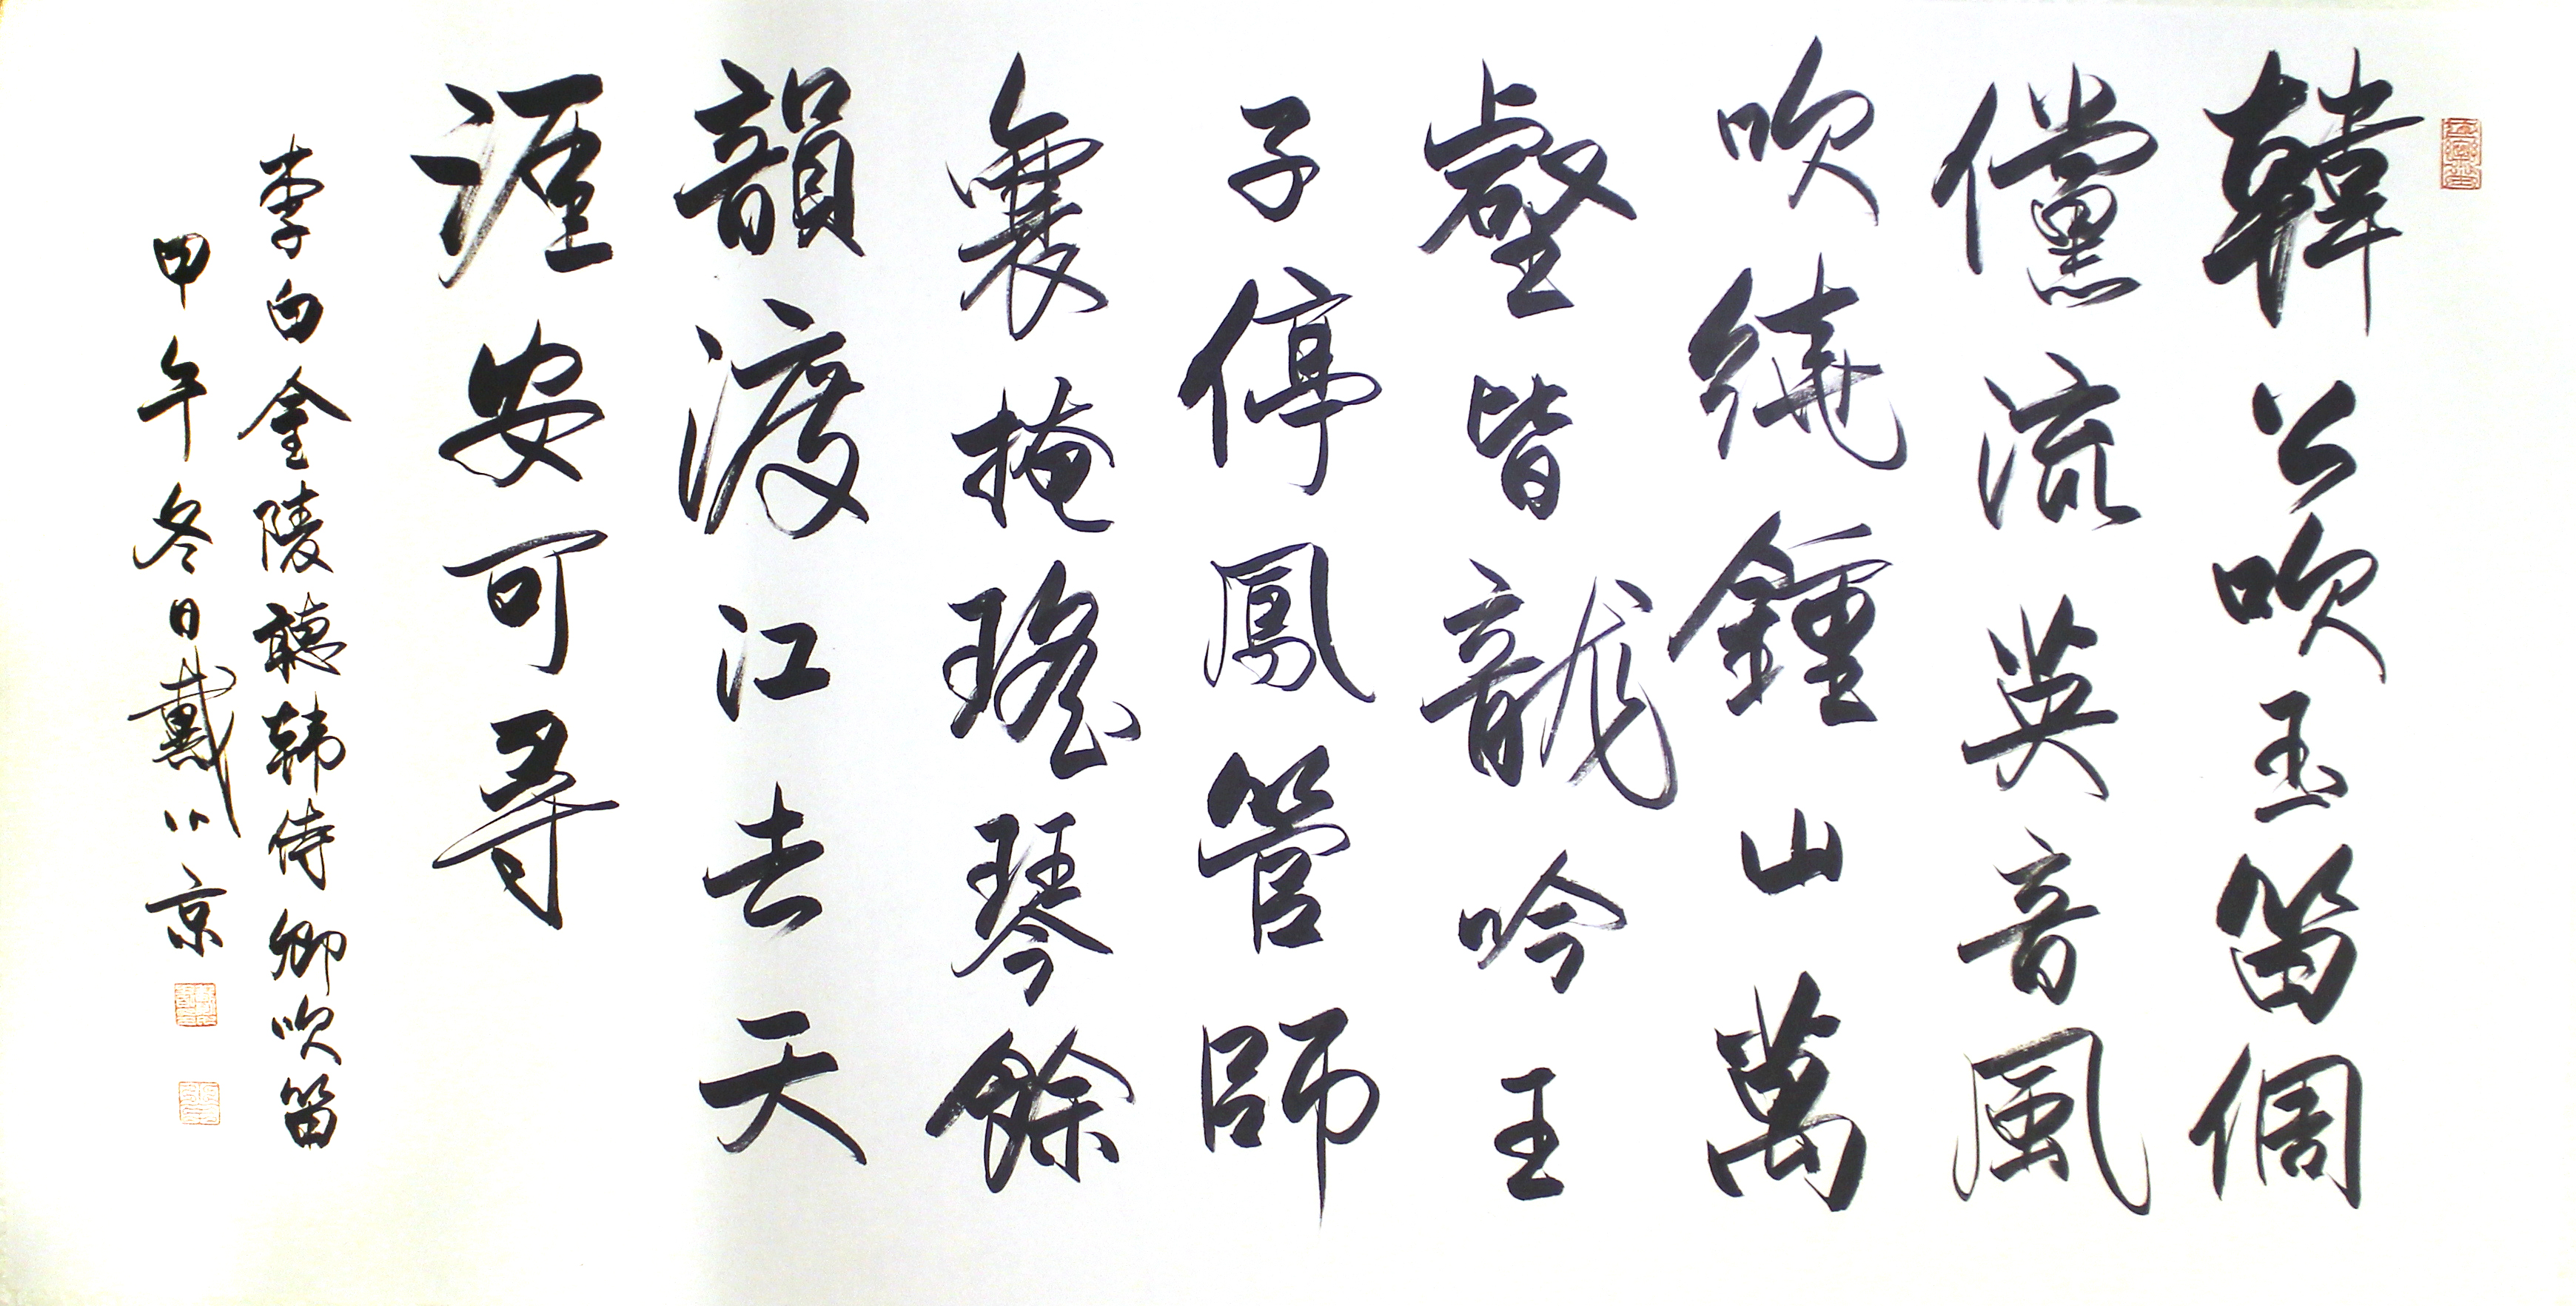 韓公吹玉笛倜
儻流英音風
吹繞鍾山萬
壑皆龍吟王
子停鳳管師
襄掩瑤琴餘
韻渡江去天
涯安可尋
李白金陵聽韩侍御吹笛
甲午冬日戴小京